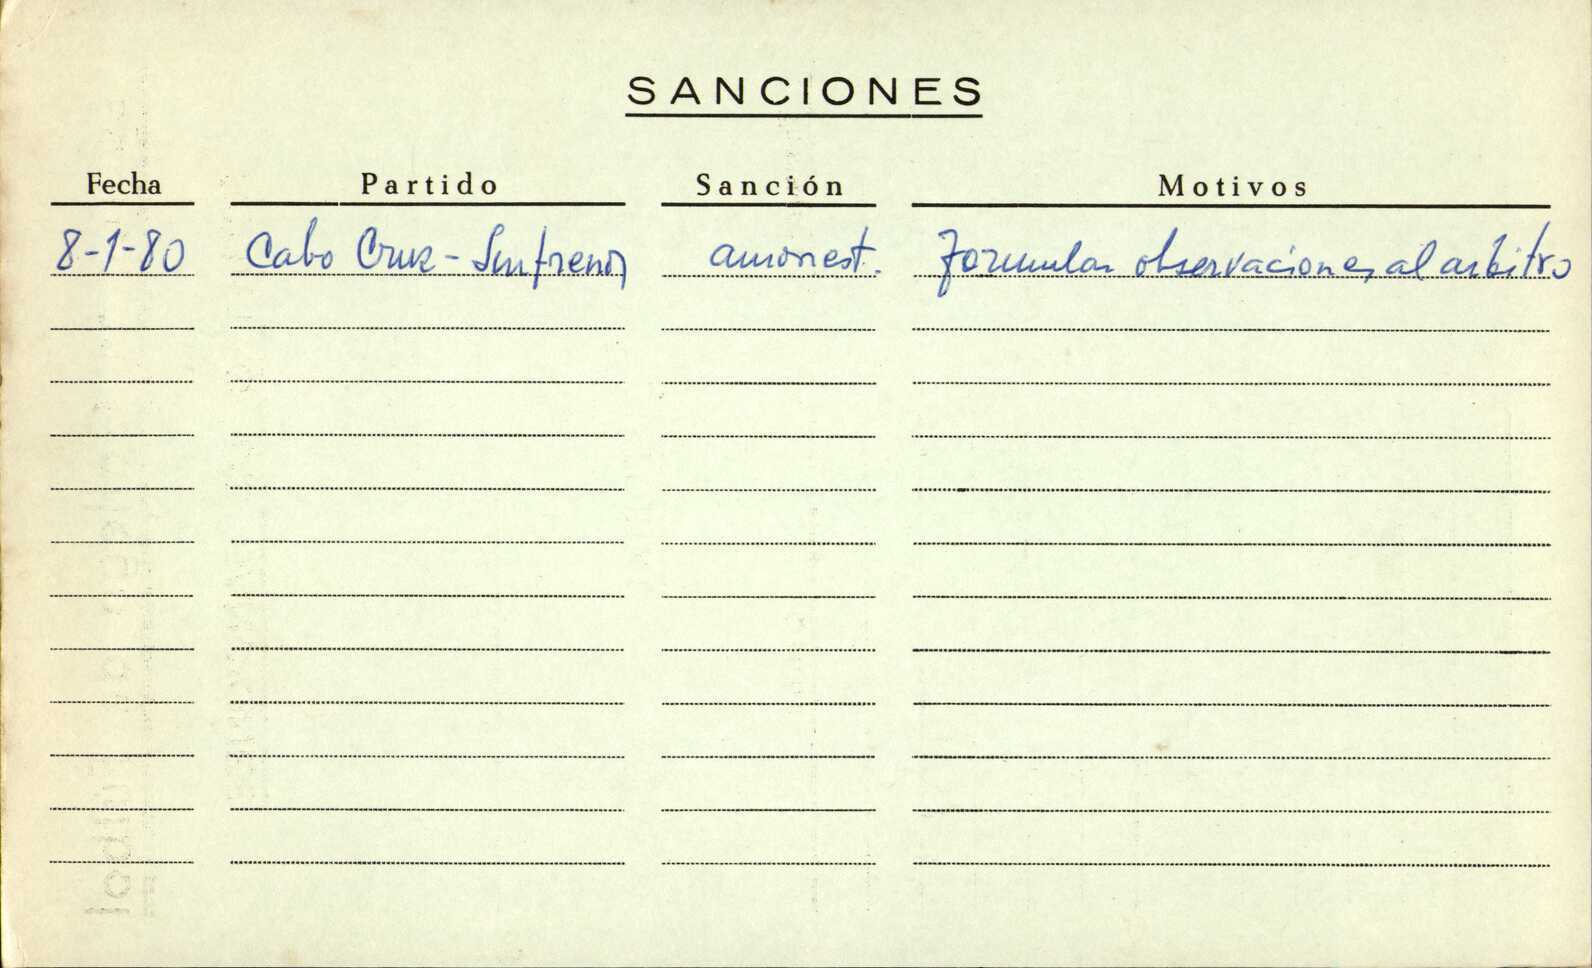 SANCIONES
Fecha Partido Sanción Motivos
8-1-80 Cabo Cruz - amonest. Formular observaciones al arbitro